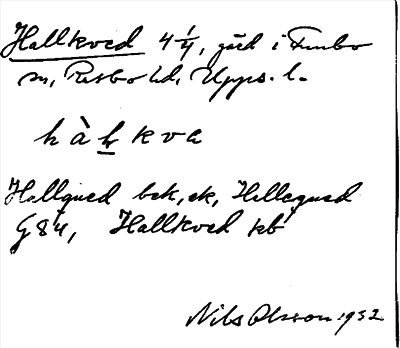 Hallkved 4 1/4, gård i Funbo
sn, Rasbo hd, Upps. l.
h à h k v a
Hallqued bek, ek, Hallequed
G 84, Hallkved kb
Nils Olsson 1932